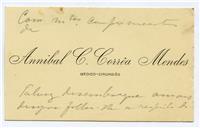 Com m.tos cumprimentos
de
Annibal C. Corrêa Mendes
MEDICO-CIRURGIÃO
Talvez desembarque amanhã